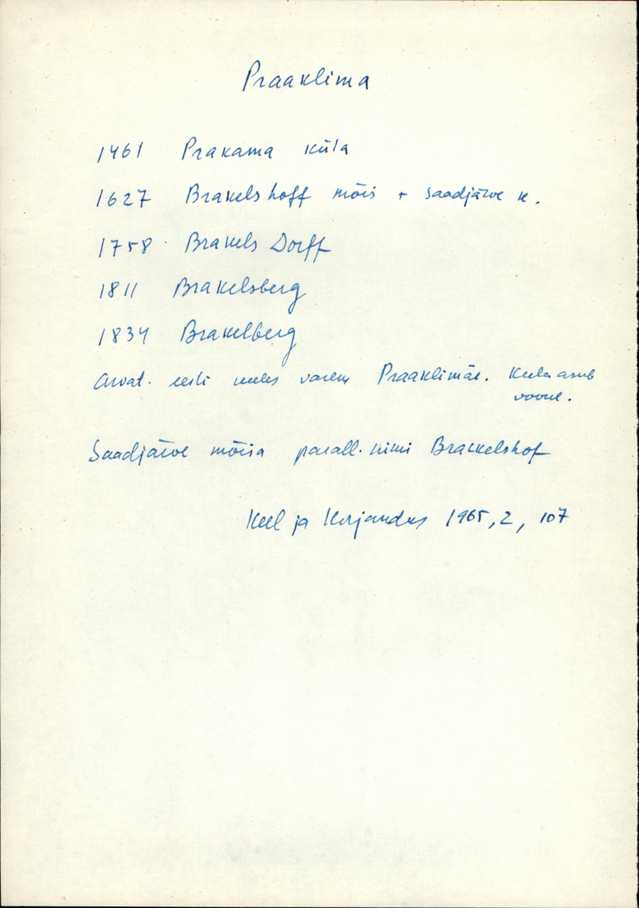 Praaklima
1461 Prakama küla
1627 Brakelshoff mõis + Saadjärve k.
1758 Brakels Dorff
1811 Brakelsberg
1834 Brakelberg
Arvat. eesti keeles varem Praaklimäe. Küla asub
voorel.
Saadjärve mõisa parall. nimi Brackelshof
Keel ja Kirjandus 1965, 2, 107